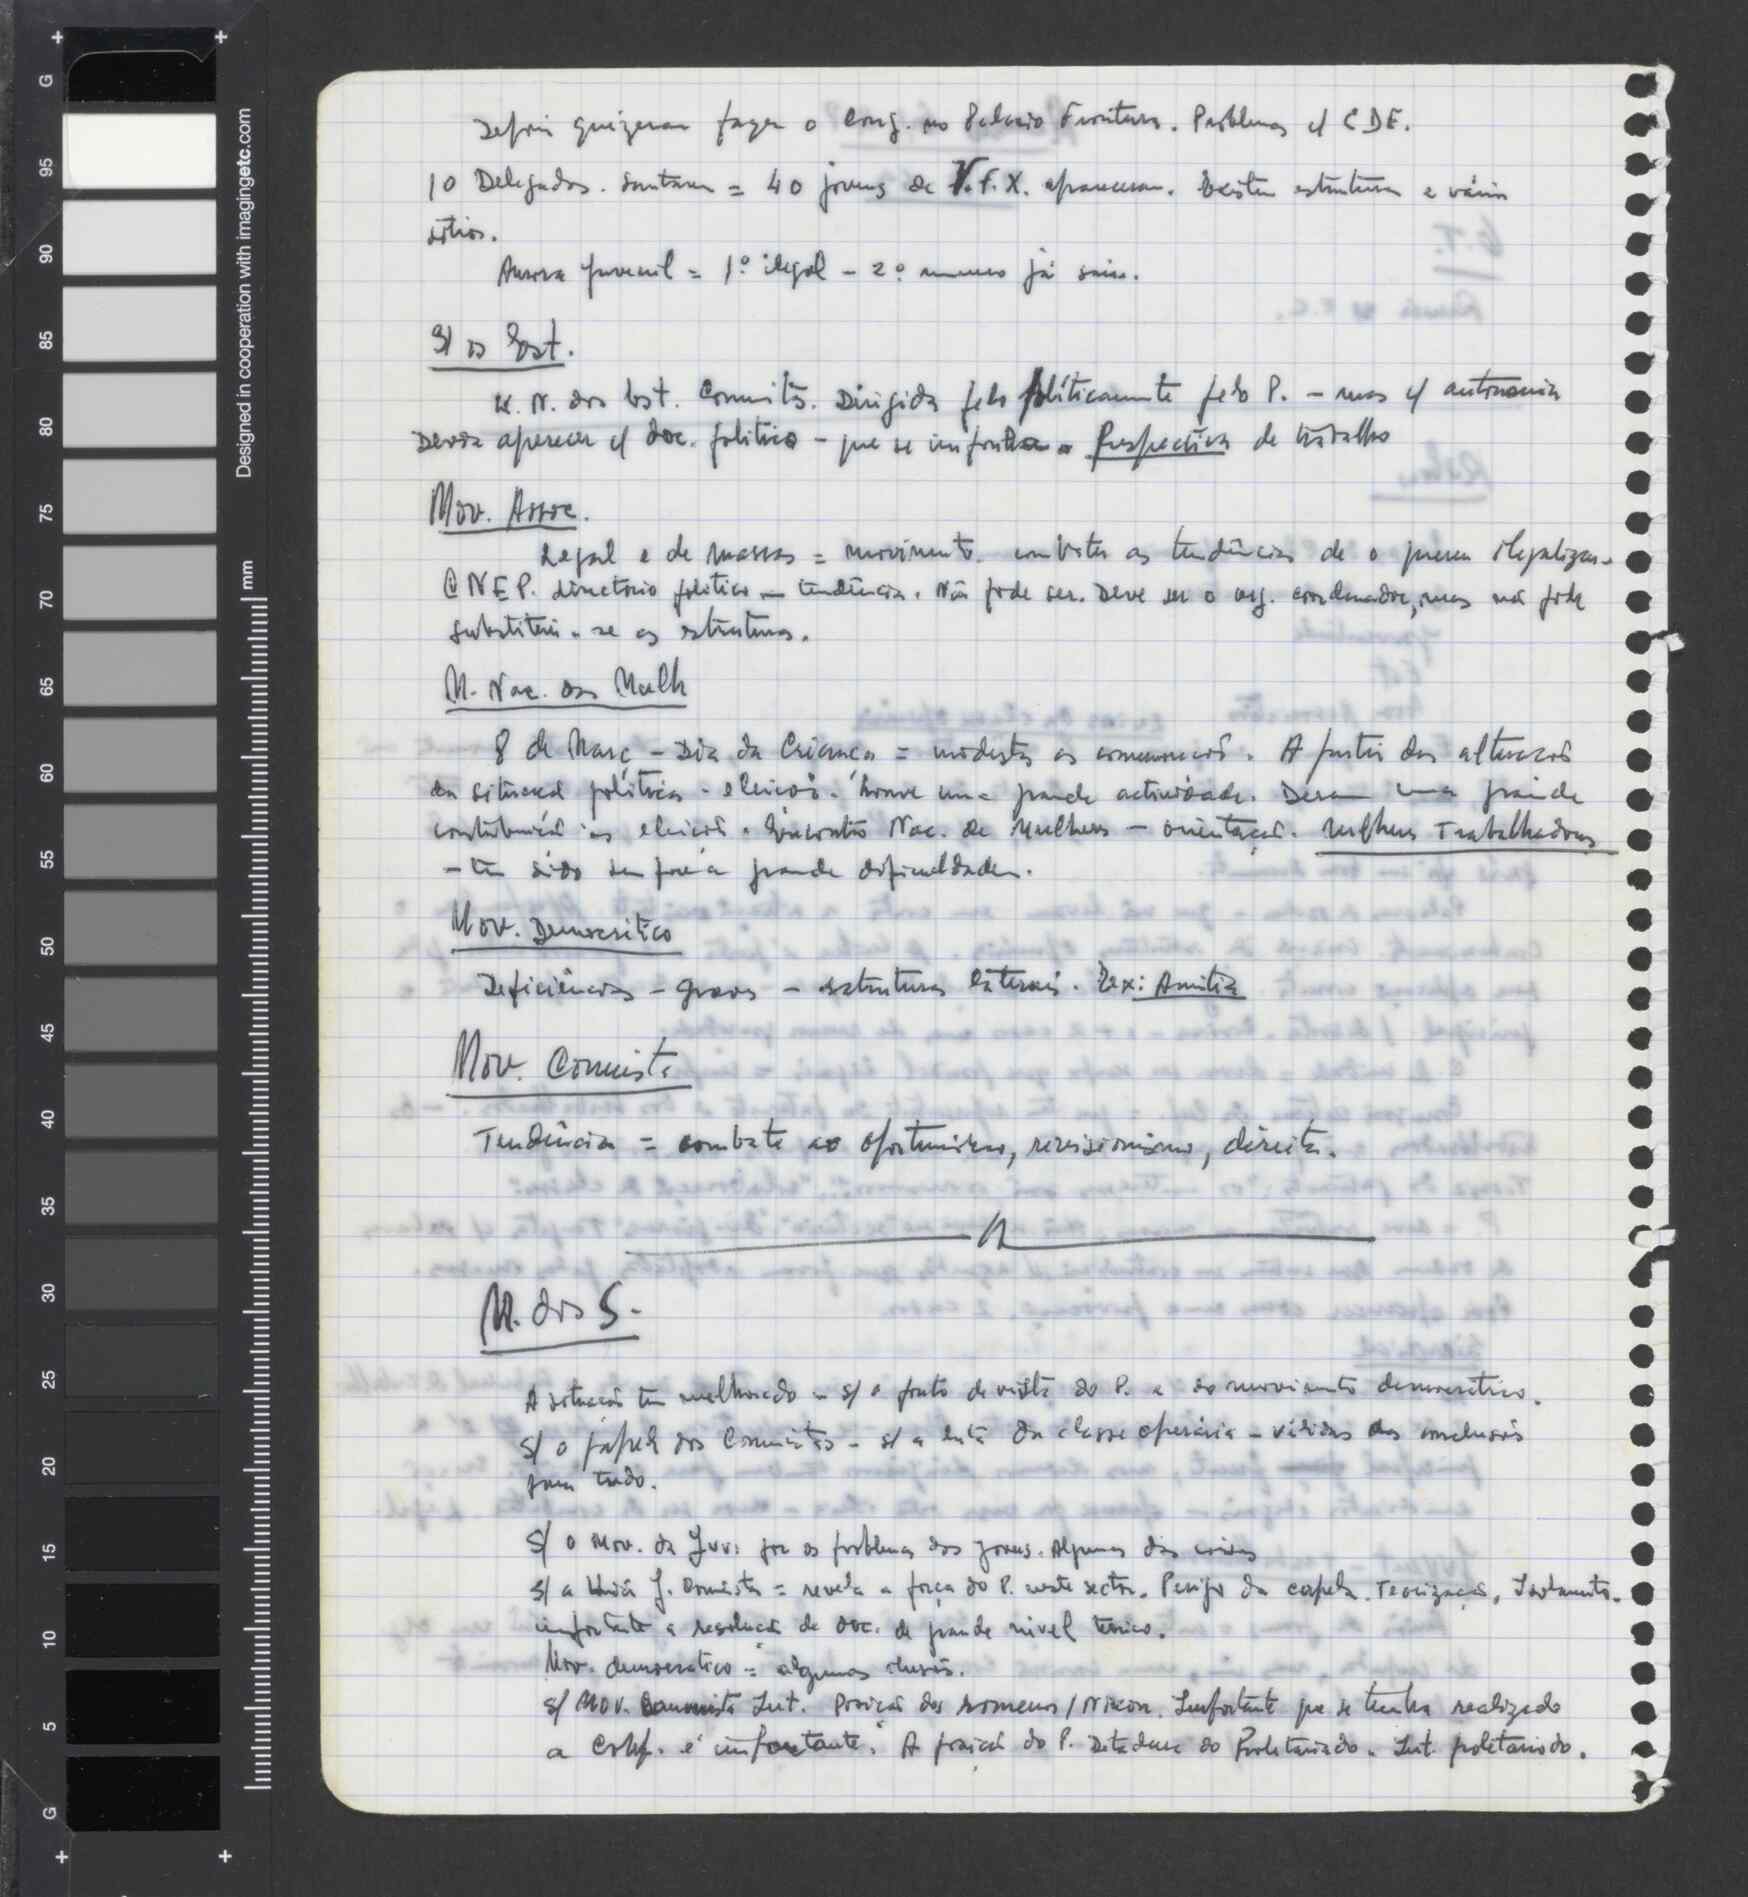 Depois quizeram fazer o Cong. no Palacio Frontura. Problemas c/ CDE.
10 Delegados. Santarem = 40 jovens de V.F.X. apareceram. Existem estruturas e vários
sitios.
Aurora Juvenil = 1º ilegal - 2º numero já saiu.
S/ os Est.
U. N. dos Est. Comunistas. Dirigida pelo políticamente pelo P. - mas c/ autonomia
Devia aparecer c/ doc. político - que se impontra a Perspectiva de trabalho
Mov. Assoc.
Legal e de massas = movimento. combater as tendências de o querer ilegalizar.
CNEP. directorio politico - tendência. Não pode ser. Deve ser o org. coordenador, mas não pode
substituir-se as estruturas.
M. Nac. das Mulh
8 de Março - Dia da Criança = modestas as comemorações. A partir das alterações
da situação política - eleições - houve uma grande actividade. Deram uma grande
contribuição ás eleições. Encontro Nac. de Mulheres - orientação. Mulheres Trabalhadoras
- tem sido sempre a grande dificuldade.
Mov. Democrático
Deficiências - graves - estruturas laterais. Ex: Amitia
Mov. Comunista
Tendências = combate ao oportunismo, revisionismo, direita.
M. dos S.
A situação tem melhorado - s/ o ponto de vista do P. e do movimento democrático.
S/ o papel dos Comunistas - s/ a luta da classe operária - válidas as conclusões
para tudo.
S/ o Mov. da Juv: por os problemas dos jovens. Algumas das coisas
S/ a União J. Comunista = revela a força do P. neste sector. Perigo da capela. Teorização, Isolamento.
importante a resolução de doc. de grande nível teorico.
Mov. democratico = algumas ilusões.
S/ Mov. Comunista Int. Posição dos romenos / Nixon. Importante que se tenha realizado
a Conf. é importante. A posição do P. Ditadura do Proletariado. Int. proletariado.